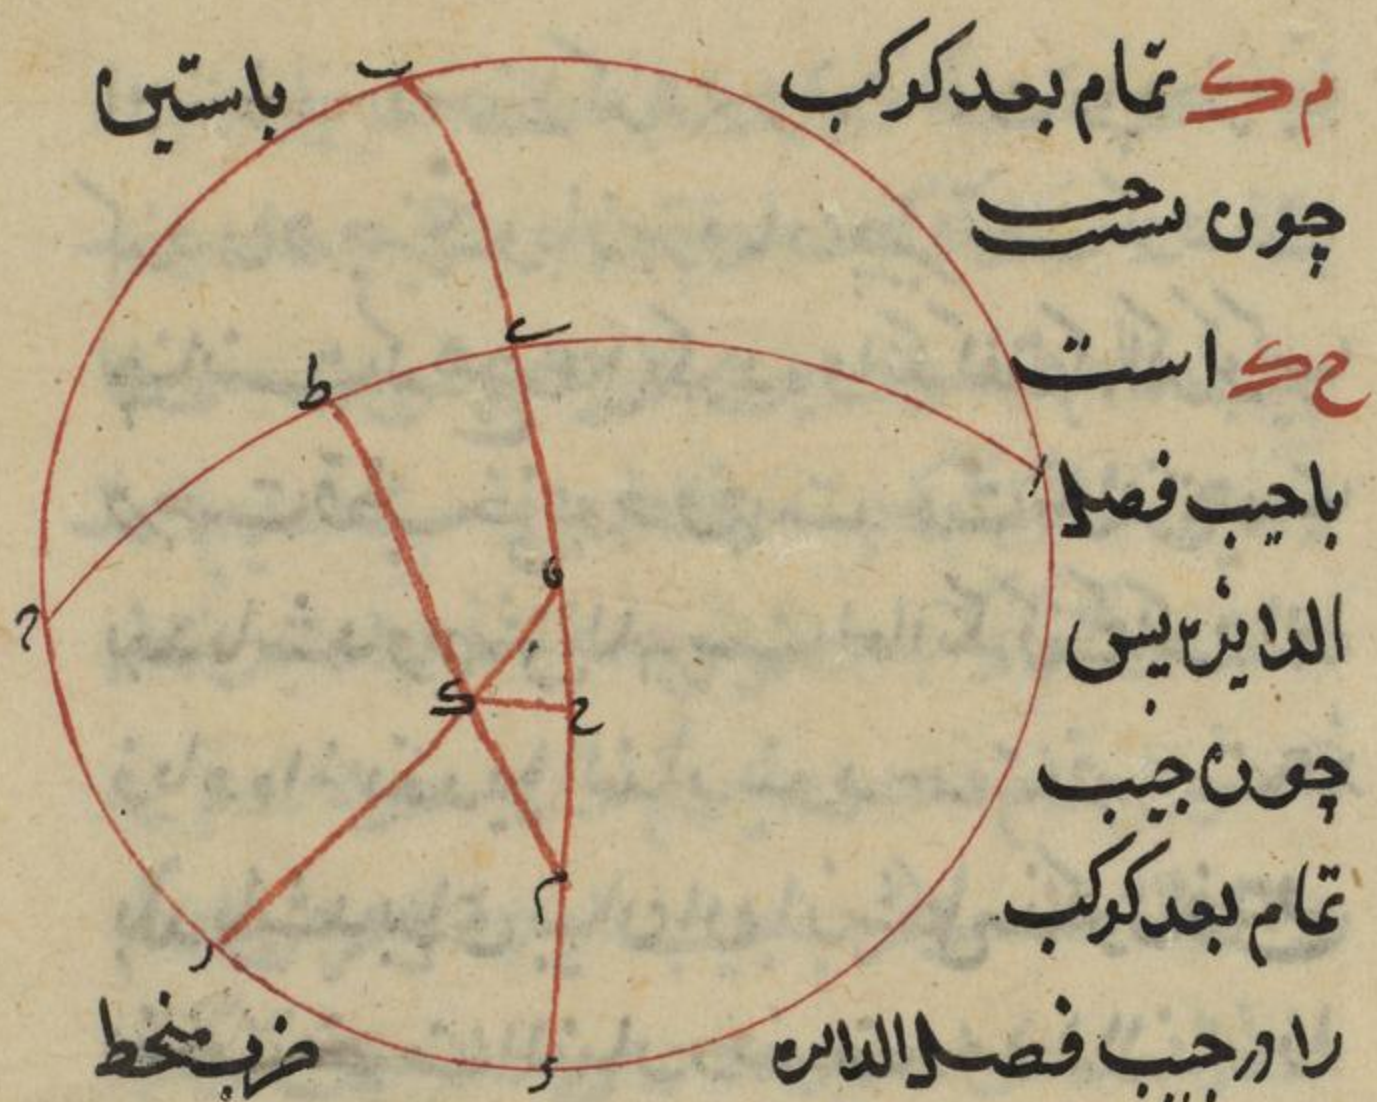 م ک تمام بعد کوکب باستین
چون نسبت جیب
ح ک است
با جیب فصل
الدایره پس
چون جیب
تمام بعد کوکب
را در جیب فصل الدایره ضرب منحط
ب
ط
ک
ح
م